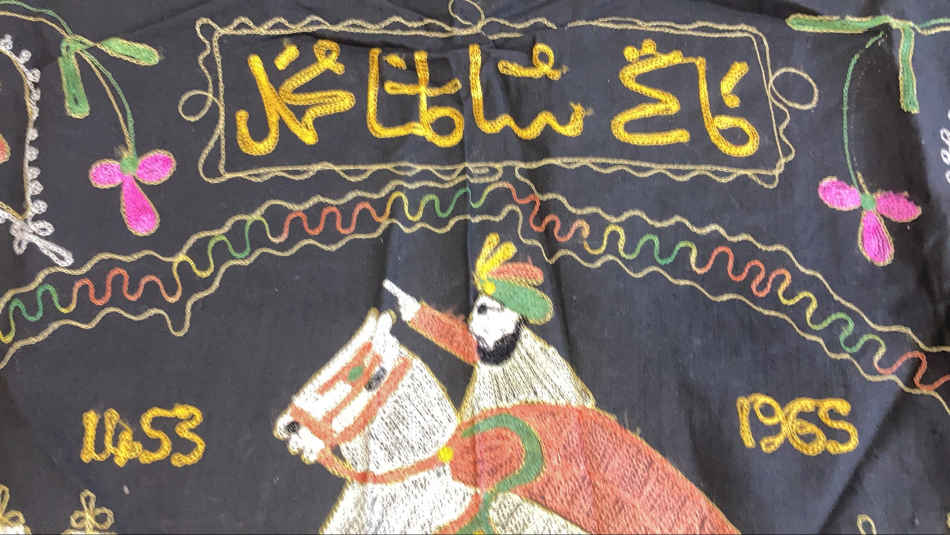 فاتح سلطان محمد
1453 1965